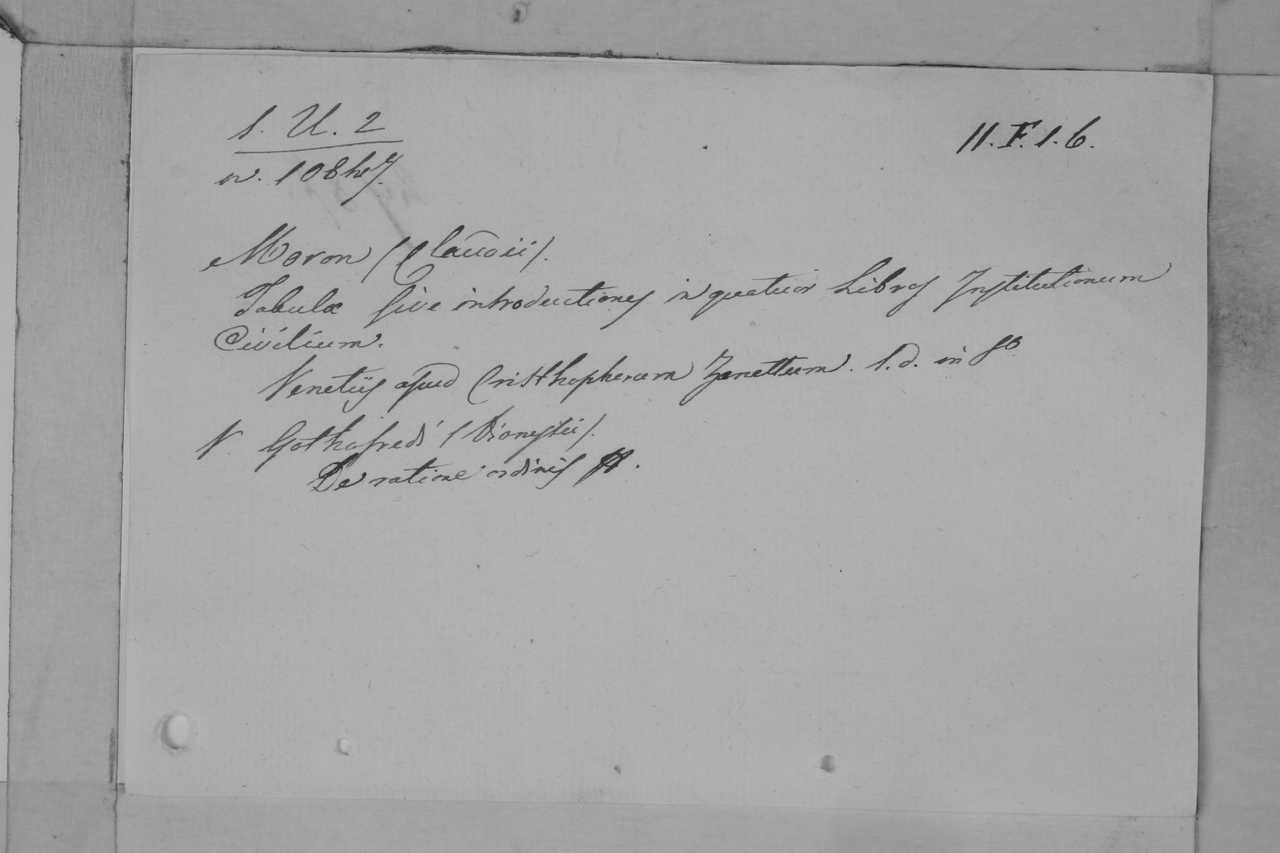 1. U. 2
11. F. 1. 6.
n. 108
Moron (Claudii).
Tabulæ sive introductiones in quatuor Libros Institutionum
Civilium.
Venetiis apud Cristhopherum Zenettum. s.d. in f°
V. Gothofredi (Dionysii).
De ratione ordinis ff.